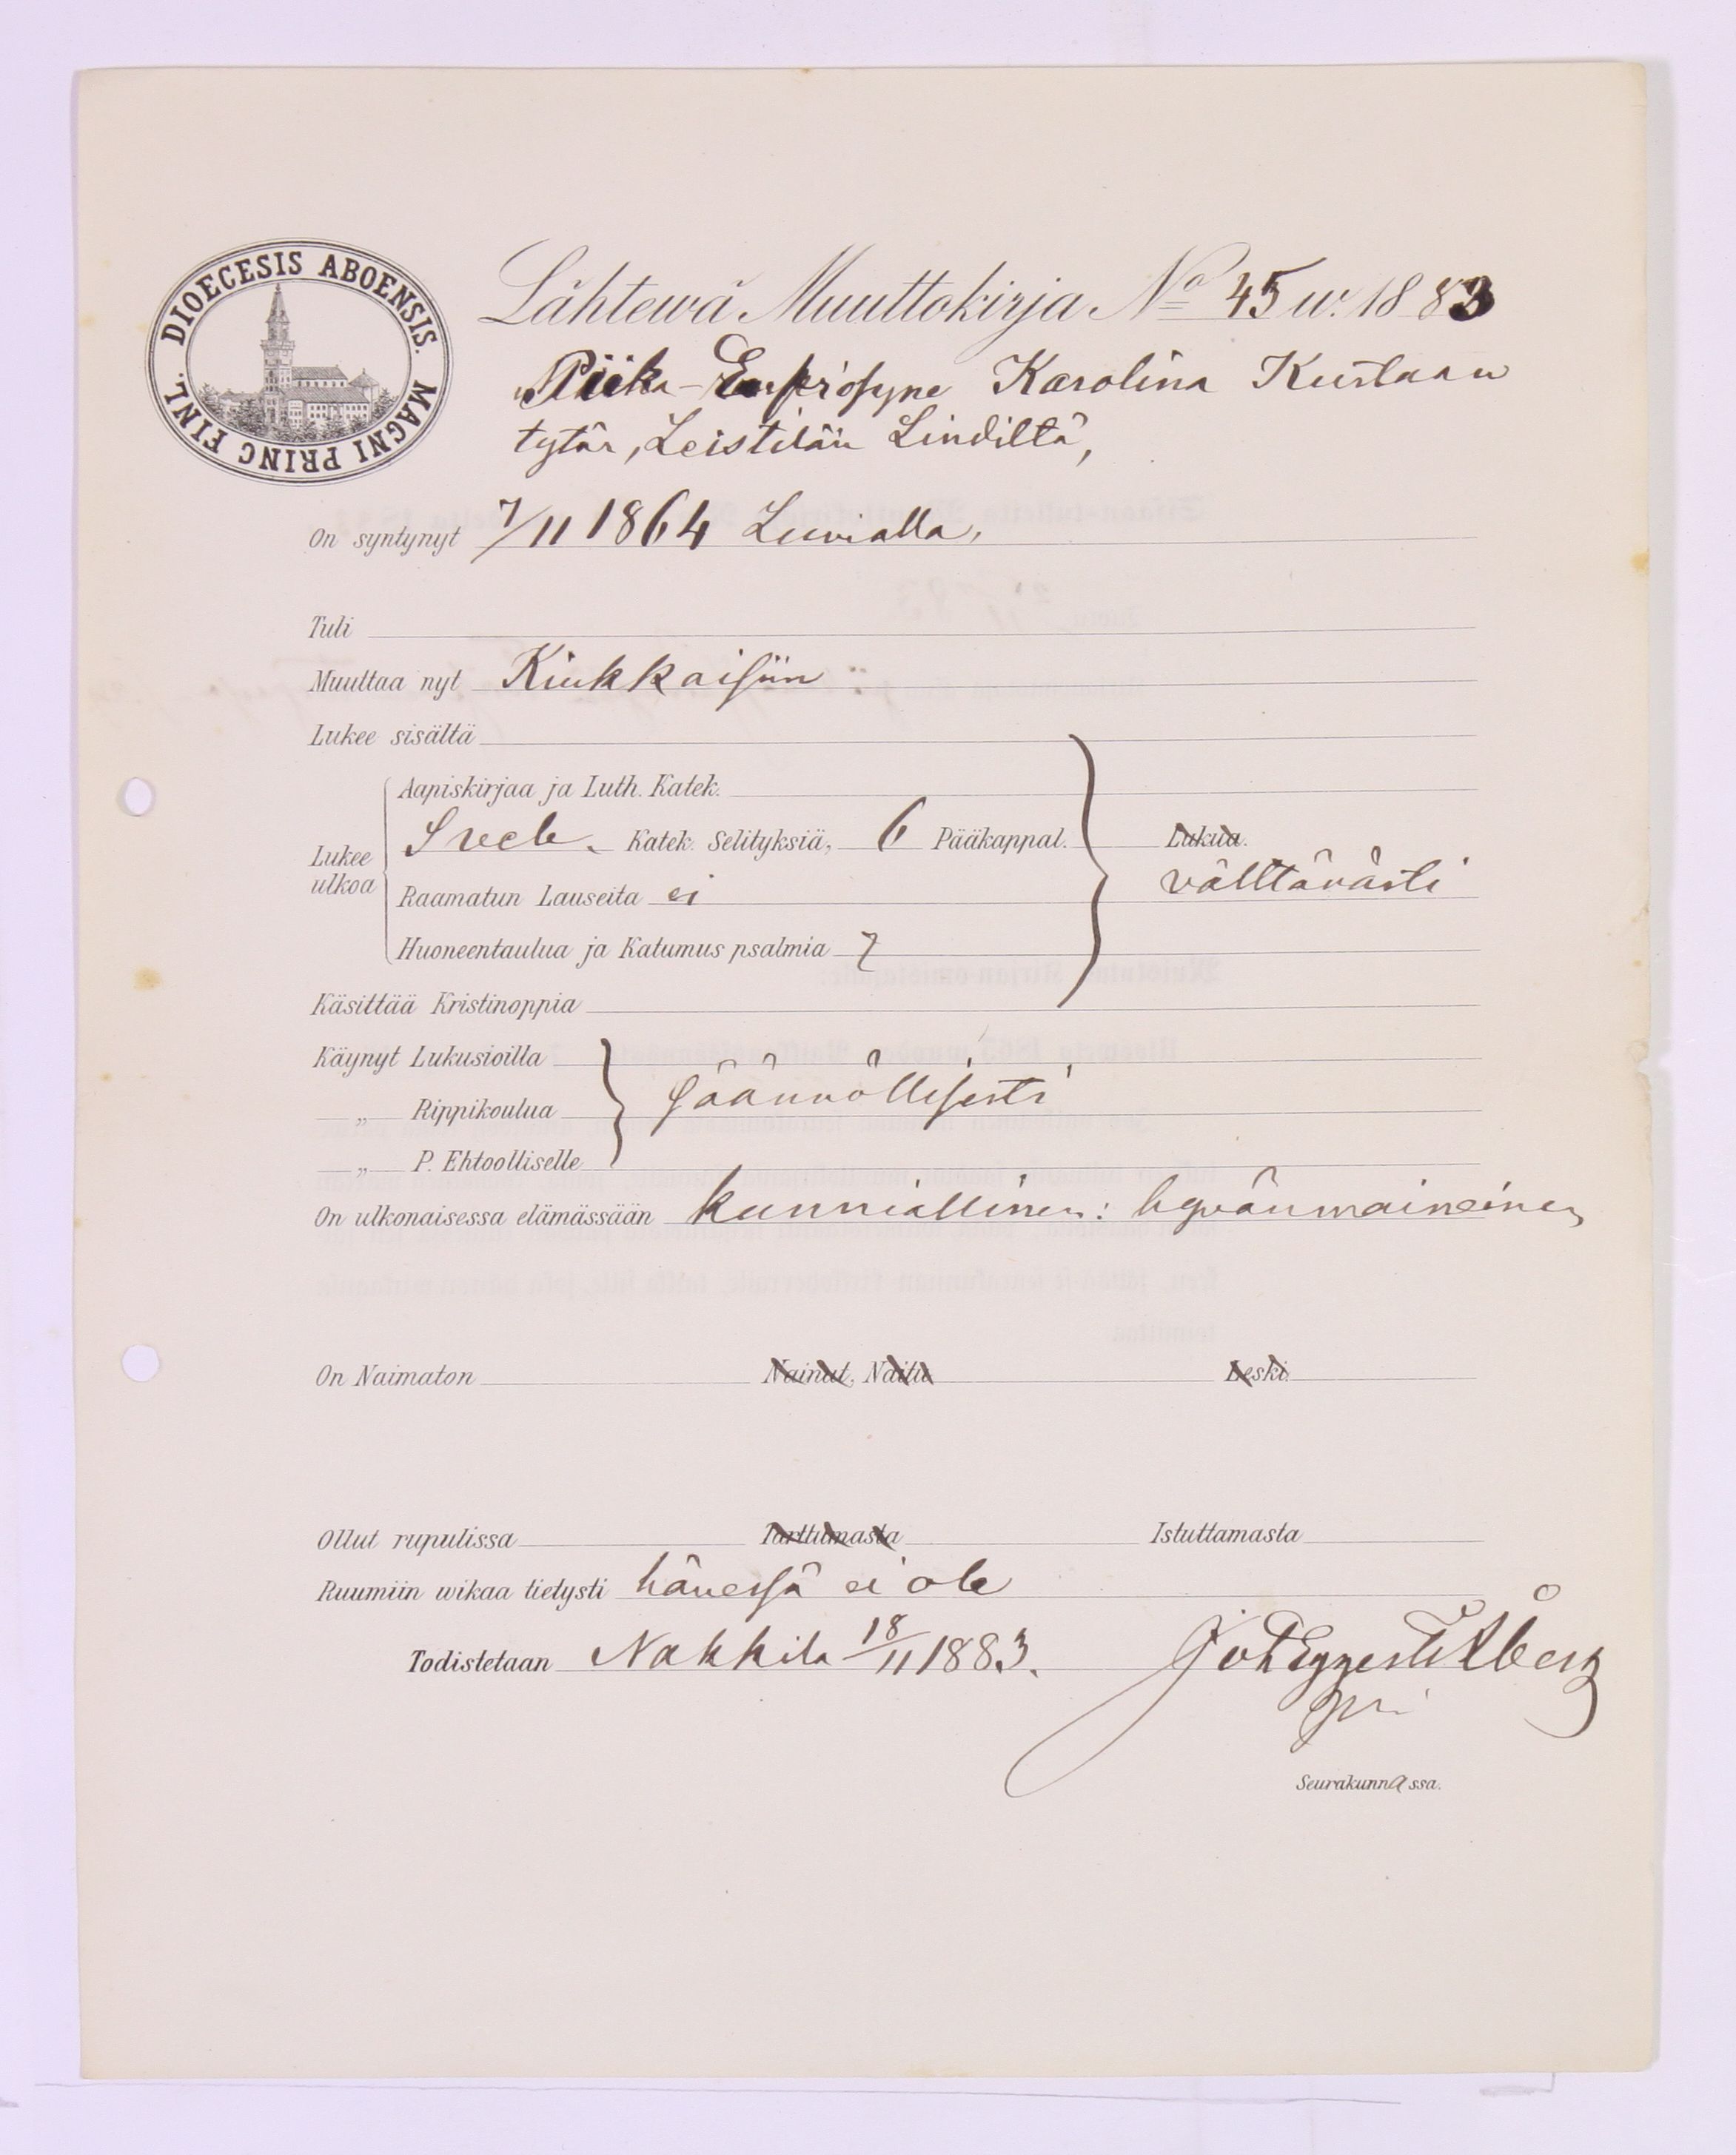 DIOECESIS ABOENSIS. MAGNI PRINC FINL.
Lähtewä Muuttokirja No 45 w. 1883
Piika Eufrosyne Karolina Kustaan
tytär, Leistilän Lindiltä,
On syntynyt 7/11 1864 Luvialla,
Tuli
Muuttaa nyt Kiukkaisiin
Lukee sisältä
Aapiskirjaa ja Luth. Katek.
Lukee ulkoa Sveb. Katek. Selityksiä, 6 Pääkappal. Lukua.
Raamatun Lauseita ei välttävästi
Huoneentaulua ja Katumus psalmia 7
Käsittää Kristinoppia
Käynyt Lukusioilla
„ Rippikoulua säännöllisesti
„ P. Ehtoolliselle
On ulkonaisessa elämässään kunniallinen: hyvänmaineinen
On Naimaton Nainut, Naitu Leski.
Ollut rupulissa Tarttumasta Istuttamasta
Ruumiin wikaa tietysti hänessä ei ole
Todistetaan Nakkila 18/11 1883.
Seurakunnassa.